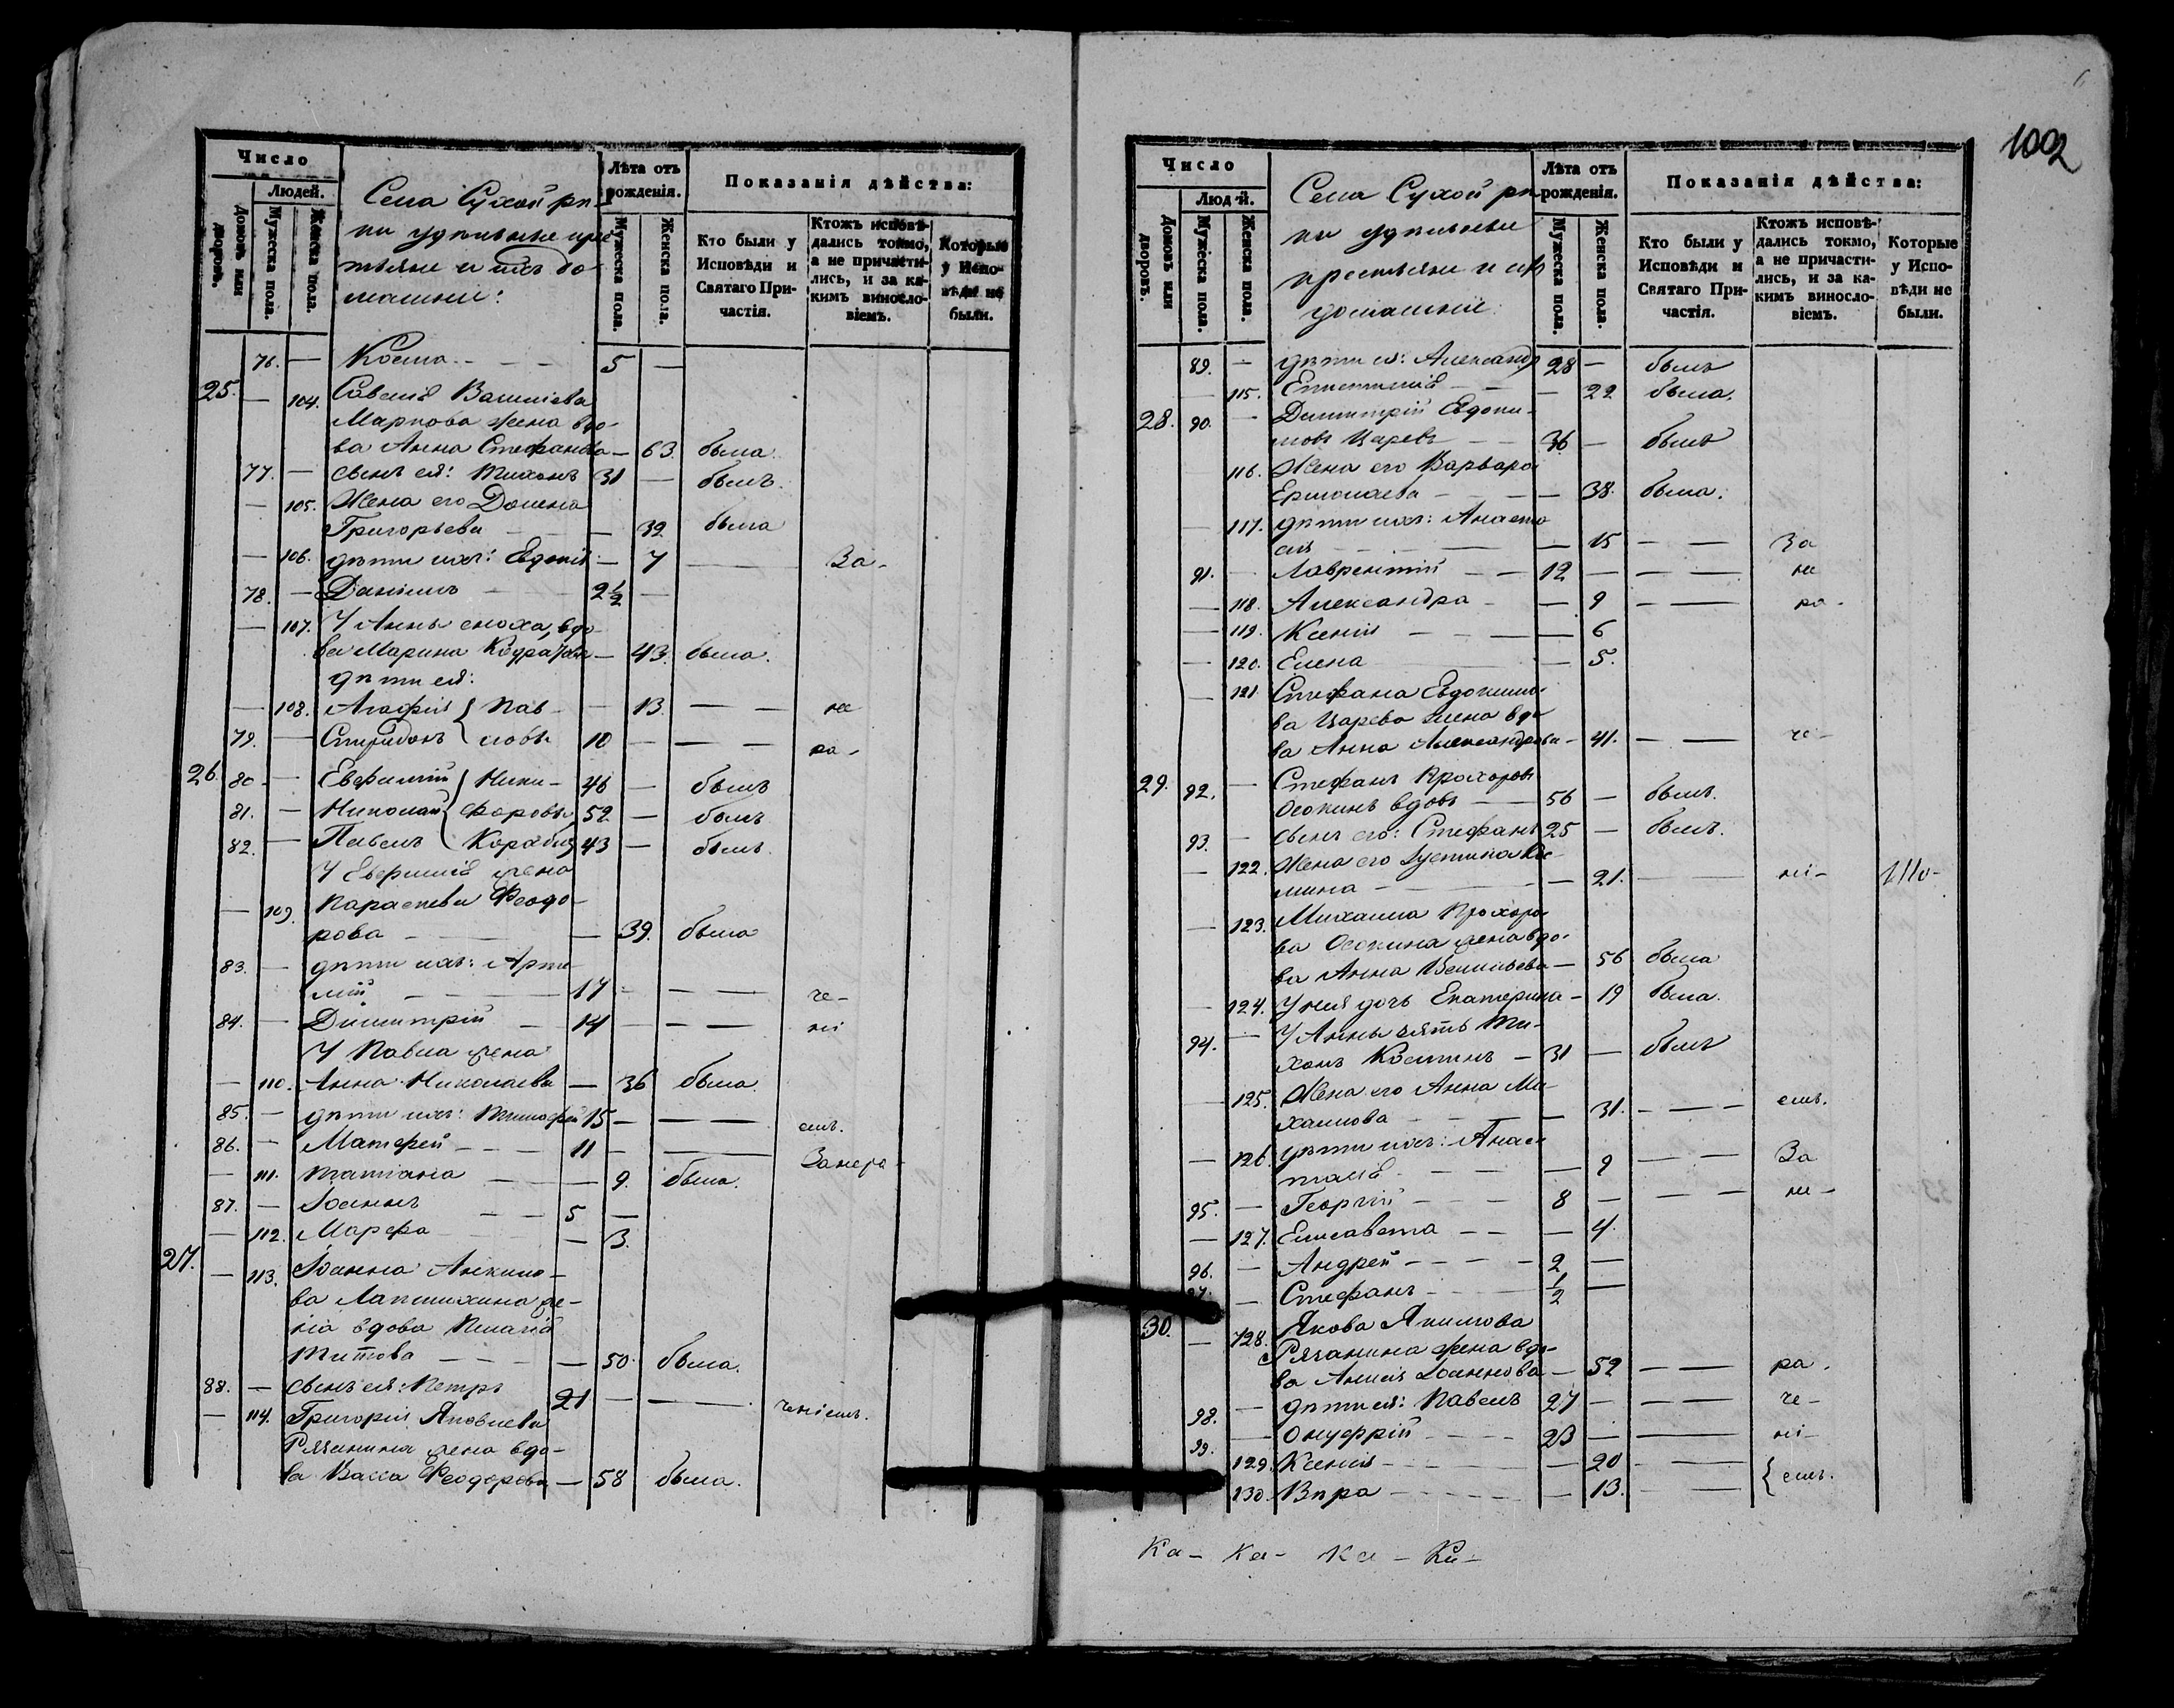 Число
Людей.
Домовъ или дворовъ.
Мужеска пола.
Женска пола.
Села Сухой рѣ-
ки удѣльные крес
тьяне и ихъ до-
машніе:
Лѣта отъ рожденія.
Мужеска пола.
Женска пола.
Показанія дѣйства:
Кто были у Исповѣди и Святаго При- частія.
Ктожъ исповѣ- дались токмо, а не причасти- лись, и за ка- кимъ виносло- віемъ.
Которые у Испо- вѣди не были.
76. — Косма - - - 5 —
25. — 104. Савелія Васильева
Маркова жена вдо-
ва Анна Стефанова — 63. была
77. — сынъ ея: Тихонъ 31 — былъ.
— 105. Жена его Домна
Григорьева — 32 была
— 106. дѣти ихъ: Евдокія — 7 — За-
78. — Даніилъ 2½ —
— 107. У Анны сноха, вдо-
ва Марина — 43. была.
дѣти ея:
— 108. Агафія { Пав- — 13. — — ма
79. — Спиридонъ { ловы 10 — — — ра-
26. 80. — Евфимій { Ники- 46 — былъ
81. — Николай { форовы 52 — былъ
82. — Павелъ { 43 — былъ.
У Евфимія жена
— 109. Параскева Феодо-
рова — 39. была
83. — дѣти ихъ: Арте-
мій — 17 — — — че-
84. — Димитрій — 14 — — — ні
У Павла жена
— 110. Анна Николаева — 36 была
85. — дѣти ихъ: Тимофей 15 — — — емъ.
86. — Матфей - - - 11 —
— 111. Татіана — 9. была.
87. — Іоаннъ - - 5 —
— 112. Марфа — 3.
27. — 113. Іоанна
ва Лапшихина же-
на вдова Пелагія
Титова — 50. была.
88. — сынъ ея: Петръ 21 — — — ченіемъ.
— 114. Григорія Яковлева
Рязанина жена вдо-
ва Васса Феодорова — 58 была.
1002
Число
Людей.
Домовъ или дворовъ.
Мужеска пола.
Женска пола.
Села Сухой рѣ
ки удѣльные
крестьяне и ихъ
домашніе:
Лѣта отъ рожденія.
Мужеска пола.
Женска пола.
Показанія дѣйства:
Кто были у Исповѣди и Святаго При- частія.
Ктожъ исповѣ- дались токмо, а не причасти- лись, и за ка- кимъ виносло- віемъ.
Которые у Испо- вѣди не были.
89. — дѣти ея: Александр 28 — былъ
— 115. Епистимія — 22 была.
28. 90. — Димитрій Евдоки-
мовъ Царевъ — 36 — былъ
116. Жена его Варвара
Ермолаева — 38. была.
— 117. дѣти ихъ: Анаста
сія — 15 — — За
91. — Лаврентій — 12 — — — ма
— 118. Александра — 9 — — ра-
— 119. Ксенія — 6
— 120. Елена — 5.
— 121. Стефана Евдокимо-
ва Царева жена вдо-
ва Анна Александрова — 41. — — че-
29. 92. — Стефанъ Прохоровъ
Осокинъ вдовъ — 56 — былъ.
93. — сынъ его: Стефанъ 25 — былъ.
— 122. Жена его Іустина Кос-
мина — 21. — — ні-
— 123. Михаила Прохоро-
ва Осокина жена вдо-
ва Анна Васильева — 56 была
— 124. У нея дочь Екатерина — 19 была.
94. — У Анны зять Ти-
хонъ Костинъ — 31 — былъ
— 125. Жена его Анна Ми-
хаилова — 31. — — емъ.
— 126. дѣти ихъ: Анас-
тасія — 9 — — За
95. — Георгій — 8 — — — ма-
— 127. Елисавета — 4.
96. — Андрей — 2 —
97. — Стефанъ — ½ —
30. — 128. Якова Якимова
Рязанина жена вдо-
ва Анисія Іоаннова — 52 — — ра-
98. — дѣти ея: Павелъ 27 — — — че-
99. — Онуфрій — 23 — — ні-
129. Ксенія — 20 — — { емъ.
130. Вѣра — 13. — —
Ка- Ка- Ка- Ка-